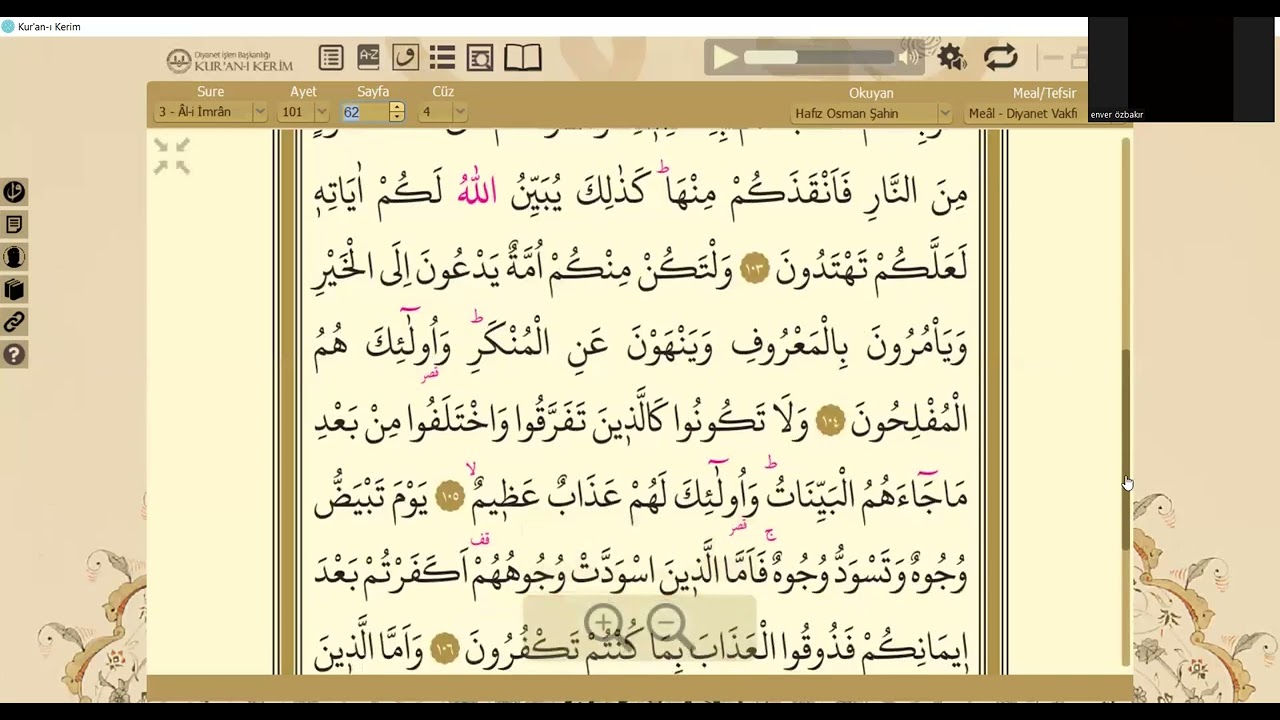 Kur'an-ı Kerim
Diyanet İşleri Başkanlığı
KUR'AN-I KERİM
A-Z
Sure Ayet Sayfa Cüz Okuyan Meal/Tefsir
3 - Âl-i İmrân 101 62 4 Hafız Osman Şahin Meâl - Diyanet Vakfi
enver özbakır
مِنَ النَّارِ فَاَنْقَذَكُمْ مِنْهَاۜ كَذٰلِكَ يُبَيِّنُ اللّٰهُ لَكُمْ اٰيَاتِه۪
لَعَلَّكُمْ تَهْتَدُونَ ﴿١٠٣﴾ وَلْتَكُنْ مِنْكُمْ اُمَّةٌ يَدْعُونَ اِلَى الْخَيْرِ
وَيَأْمُرُونَ بِالْمَعْرُوفِ وَيَنْهَوْنَ عَنِ الْمُنْكَرِۜ وَاُو۬لٰٓئِكَ هُمُ
الْمُفْلِحُونَ ﴿١٠٤﴾ وَلَا تَكُونُوا كَالَّذ۪ينَ تَفَرَّقُوا وَاخْتَلَفُوا مِنْ بَعْدِ
مَا جَٓاءَهُمُ الْبَيِّنَاتُۜ وَاُو۬لٰٓئِكَ لَهُمْ عَذَابٌ عَظ۪يمٌۙ ﴿١٠٥﴾ يَوْمَ تَبْيَضُّ
وُجُوهٌ وَتَسْوَدُّ وُجُوهٌۚ فَاَمَّا الَّذ۪ينَ اسْوَدَّتْ وُجُوهُهُمْ۠ اَكَفَرْتُمْ بَعْدَ
ا۪يمَانِكُمْ فَذُوقُوا الْعَذَابَ بِمَا كُنْتُمْ تَكْفُرُونَ ﴿١٠٦﴾ وَاَمَّا الَّذ۪ينَ